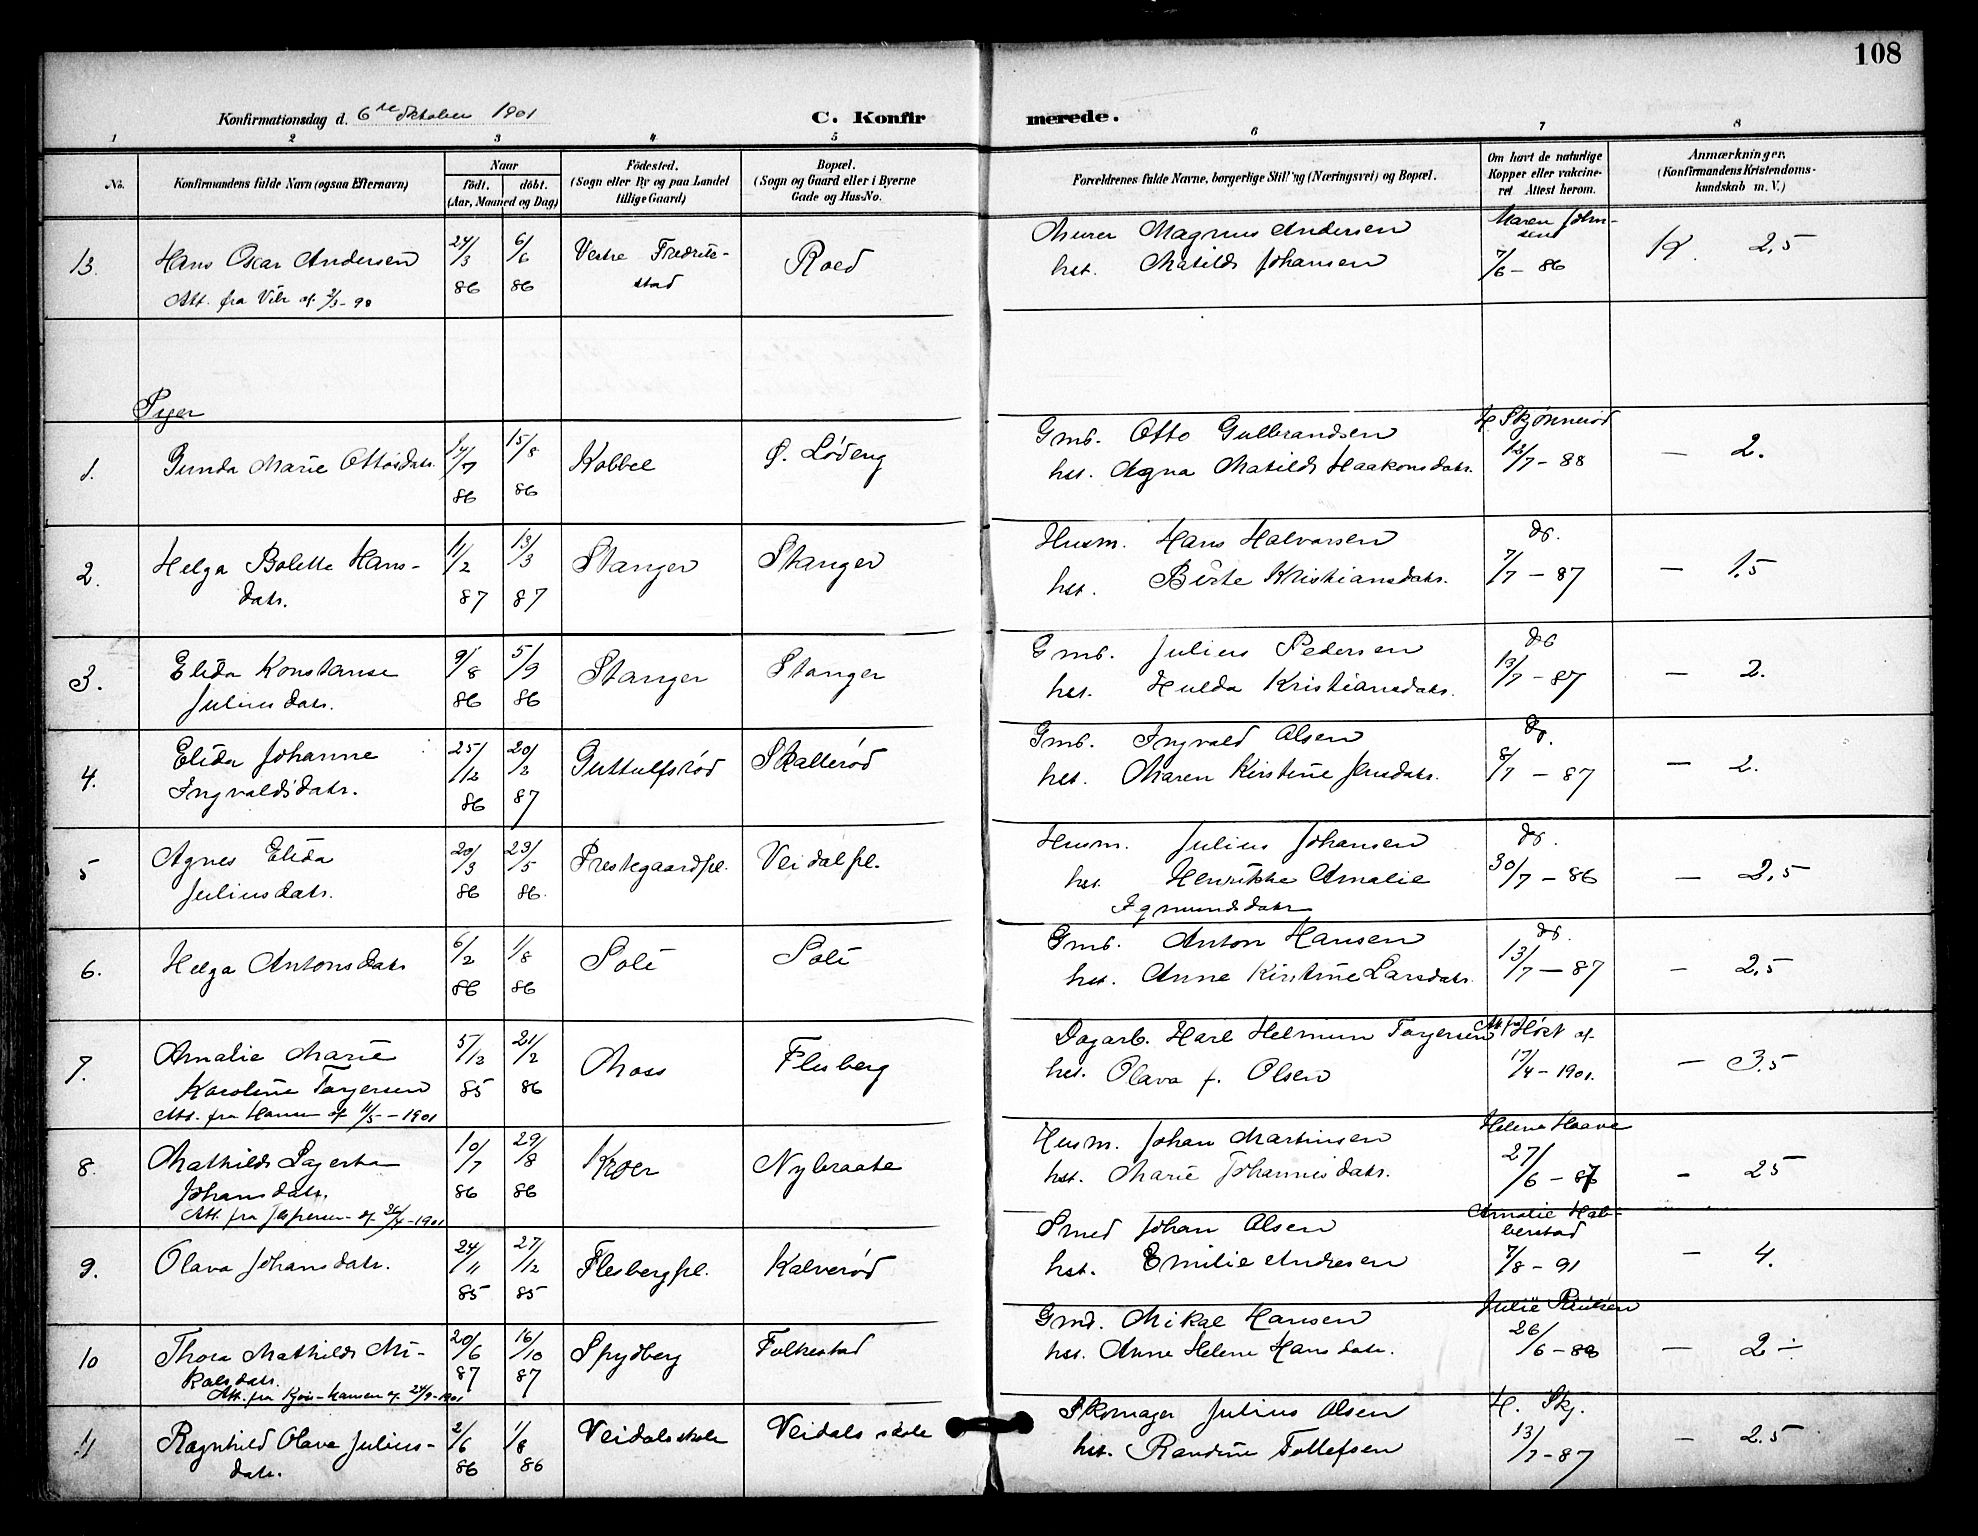 108
Konfirmationsdag d. 6te Oktober 1901
C. Konfirmerede.
1 2 3 4 5 6 7 8
No.
Konfirmandens fulde Navn (ogsaa Efternavn)
Naar
födt. döbt.
(Aar, Maaned og Dag)
Födested.
(Sogn eller By og paa Landet
tillige Gaard)
Bopæl.
(Sogn og Gaard eller i Byerne
Gade og Hus-No.
Forældrenes fulde Navne, borgerlige Still'ng (Næringsvei) og Bopæl.
Om havt de naturlige
Kopper eller vakcine-
ret Attest herom.
Anmærkninger.
(Konfirmandens Kristendoms-
kundskab m. V.)
13. Hans Oscar Andersen 24/3 86 6/6 86 Vestre Fredriks-
stad Roed
Att. fra Vilr af 2/3-98
Murer Magnus Andersen
hst. Matilde Johansen
Maren John-
sen
7/6 - 86
2,5
Piger
1. Gunda Marie Ottosdatr. 14/7 86 15/8 86 Kobbel Ø. Lödeng
Gmb. Otto Gulbrandsen
hst. Agna Matilde Haakonsdatr.
H. Skjönnerød
12/7 - 88
— 2.
2. Helga Bolette Hans-
datr. 11/2 87 13/3 87 Stanger Stanger
Husm. Hans Halvorsen
hst. Birte Kristiansdatr.
do.
7/7 - 87
— 1,5
3. Elida Konstanse
Juliusdatr. 9/8 86 5/9 86 Stanger Stanger
Gmb. Julius Pedersen
hst. Hulda Kristiansdatr.
do
13/7 - 87
— 2.
4. Elida Johanne
Ingvaldsdatr. 25/12 86 20/2 87 Guttulfsröd Skalleröd
Gmb. Ingvald Olsen
hst. Maren Kirstine Jensdatr.
do.
8/7 - 87
— 2.
5 Agnes Elida
Juliusdatr. 20/3 86 23/5 86. Prestegaardspl. Veidalspl.
Husm. Julius Johansen
hst. Henrikke Amalie
Igmundsdatr
do.
30/7 - 86
— 2,5
6. Helga Antonsdatr 6/2 86 1/8 86 Soli Soli
Gmb. Anton Hansen
hst. Anne Kirstine Larsdatr.
do.
13/7 - 87
— 2,5
7. Amalie Marie
Karoline Torgersen 5/12 85 21/2 86 Moss Flesberg
Att. fra Hansen af 11/5 - 1901
Dagarb. Karl Helmun Torgersen
hst. Olava f. Olsen
Att. fra Höst af
17/4 - 1901.
— 3.5
8. Mathilde Lagerta
Johansdatr. 10/7 86 29/8 86 Kroer Nybraate
Att. fra Jespersen af 26/4-1901
Husm. Johan Martinsen
hst. Marie Johannesdatr.
Helene Haave
27/6 - 86
— 25
9. Olava Johansdatr. 24/11 85 27/12 85 Flesbergpl. Kalveröd
Smed Johan Olsen
hst. Emilie Andresen
Amalie Hal-
berstad
7/8 - 91
— 4.
10 Thora Mathilde Mi-
kalsdatr. 20/6 87 16/10 87 Spydberg Folkestad
Att. fra Kjös-Hansen af 24/9-1901
Gmd. Mikal Hansen
hst. Anne Helene Hansdatr.
Julie Paulsen
26/6 - 88
— 2 ÷
11 Ragnhild Olava Julius-
datr. 2/6 86 1/8 86 Veidalsskole Veidals skole
Skomager Julius Olsen
hst. Randine Tollefsen
H. Skj.
13/7 - 87
— 2.5